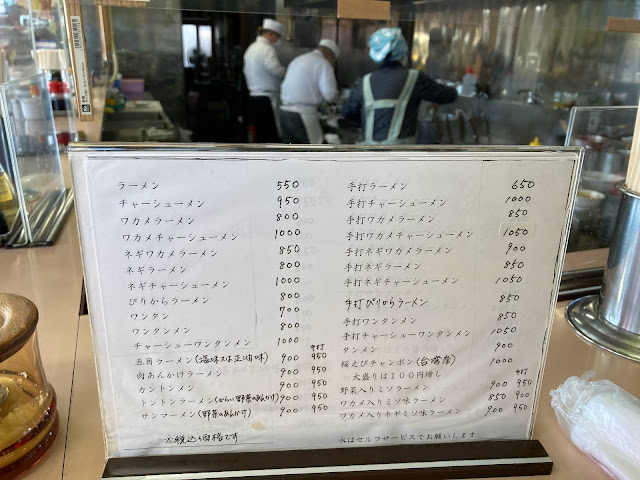 ラーメン 550
チャーシューメン 950
ワカメラーメン 800
ワカメチャーシューメン 1000
ネギワカメラーメン 850
ネギラーメン 800
ネギチャーシューメン 1000
ぴりからラーメン 800
ワンタン 700
ワンタンメン 800
チャーシューワンタンメン 1000
手打
五目ラーメン(塩味又は正油味) 900 950
肉あんかけラーメン 900 950
カントンメン 900 950
トントンラーメン(からい野菜のあんかけ) 900 950
サンマーメン(野菜のあんかけ) 900 950
※税込み価格です
手打ラーメン 650
手打チャーシューメン 1000
手打ワカメラーメン 850
手打ワカメチャーシューメン 1050
手打ネギワカメラーメン 900
手打ネギラーメン 850
手打ネギチャーシューメン 1050
手打ぴりからラーメン 850
手打ワンタンメン 850
手打チャーシューワンタンメン 1050
タンメン 900
桜えびチャンポン(台湾産) 1000
大盛りは100円増し
手打
野菜入りミソラーメン 900 950
ワカメ入りミソ味ラーメン 850 900
ワカメ入りネギミソ味ラーメン 900 950
水はセルフサービスでお願いします